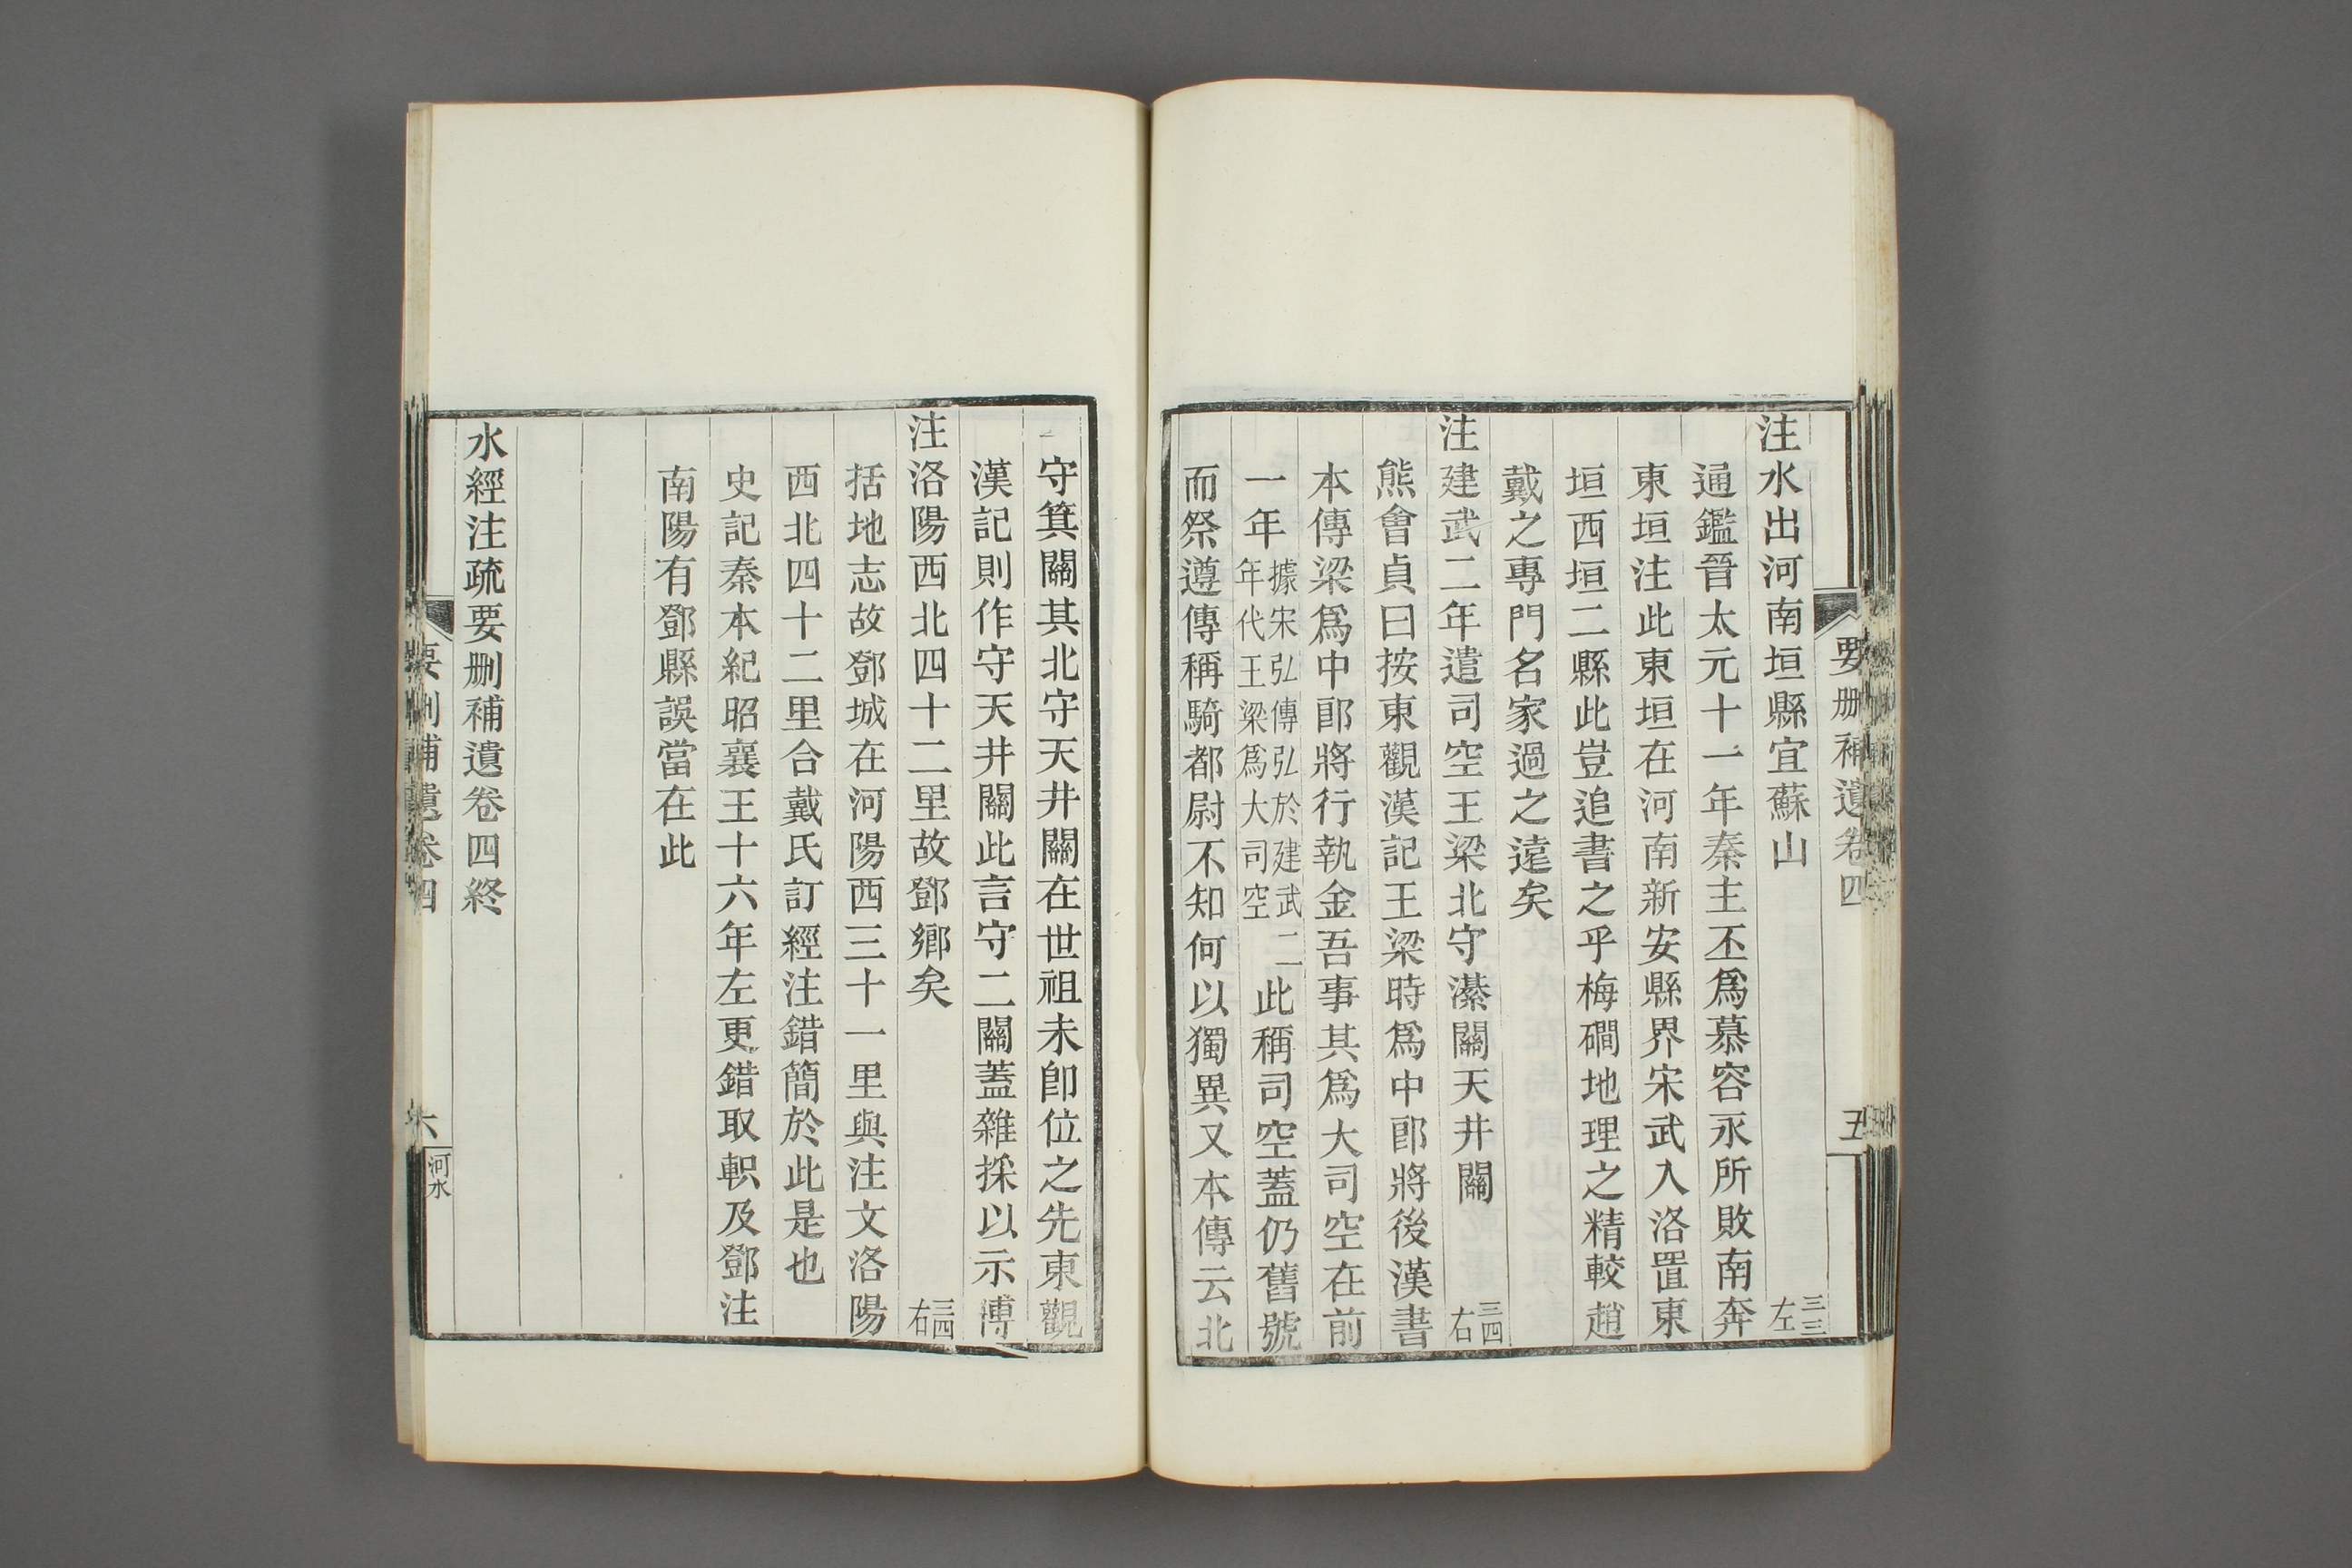 要刪補遺卷四
五
注水出河南垣縣宜蘇山 三三左
通鑑晉太元十一年秦主丕爲慕容永所敗南奔
東垣注此東垣在河南新安縣界宋武入洛置東
垣西垣二縣此豈追書之乎梅磵地理之精較趙
戴之專門名家過之遠矣
注建武二年遣司空王梁北守濝關天井關 三四右
熊會貞曰按東觀漢記王梁時爲中郎將後漢書
本傳梁爲中郎將行執金吾事其爲大司空在前
一年據宋弘傳弘於建武二年代王梁爲大司空此稱司空蓋仍舊號
而祭遵傳稱騎都尉不知何以獨異又本傳云北
守箕關其北守天井關在世祖未卽位之先東觀
漢記則作守天井關此言守二關蓋雜採以示博
注洛陽西北四十二里故鄧鄉矣 三四右
括地志故鄧城在河陽西三十一里與注文洛陽
西北四十二里合戴氏訂經注錯簡於此是也
史記秦本紀昭襄王十六年左更錯取軹及鄧注
南陽有鄧縣誤當在此
水經注疏要刪補遺卷四終
要刪補遺卷四
六
河水